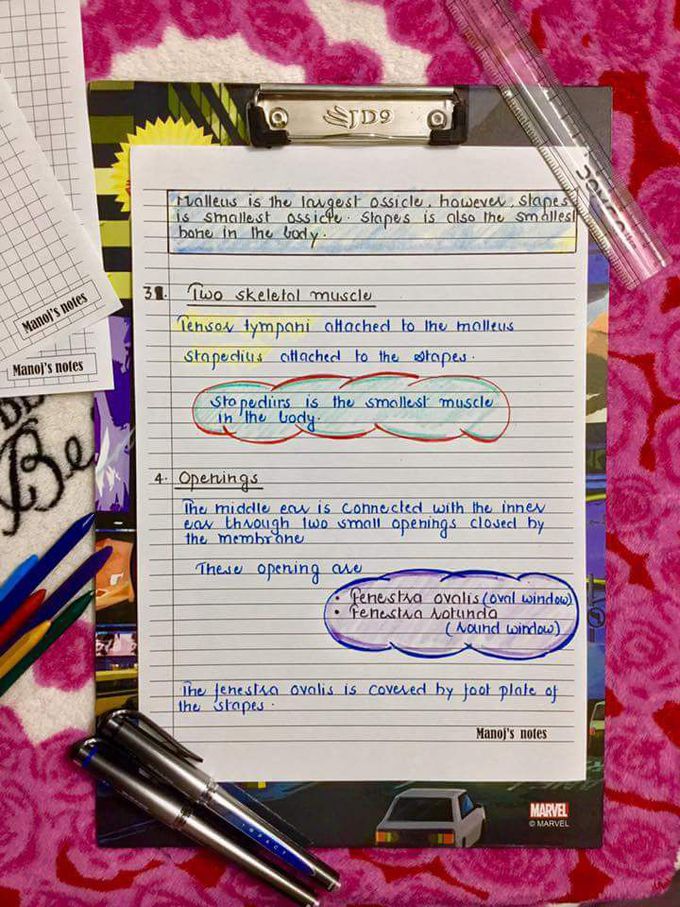 JD9
Malleus is the largest ossicle. however, stapes
is smallest ossicle. Stapes is also the smallest
bone in the body.
3. Two skeletal muscle
Tensor tympani attached to the malleus
Stapedius attached to the stapes.
Stapedius is the smallest muscle
in the body.
4. Openings
The middle ear is connected with the inner
ear through two small openings closed by
the membrane
These opening are
• Fenestra ovalis (oval window)
• Fenestra rotunda
(round window)
The fenestra ovalis is covered by foot plate of
the stapes.
Manoj's notes
Manoj's notes
Manoj's notes
Be
IMPACT
MARVEL
© MARVEL